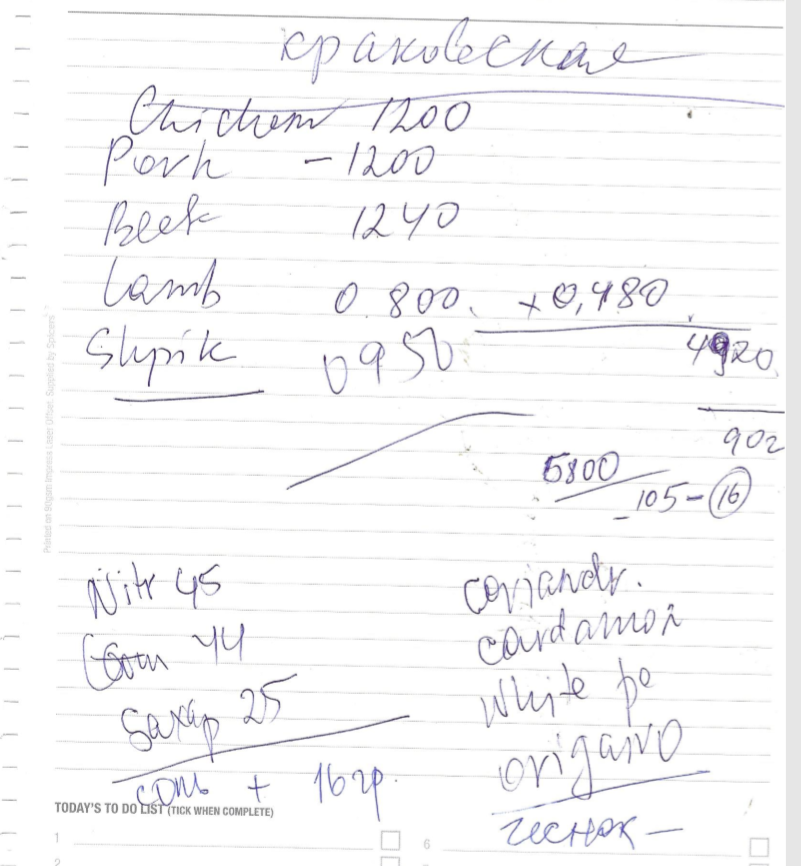 краковская
Chicken 1200
Pork - 1200
Beef 1240
Lamb 0.800. + 0,480
Shpik 0950
4920
902
5800
105 - 16
Nitr 45
соли 44
Saxap 25
соль + 16 гр.
coriandr.
cardamon
White pe
origano
чеснок -
TODAY'S TO DO LIST (TICK WHEN COMPLETE)
1
6
2
Printed on 80gsm Impress Laser Offset. Supplied by Spicers